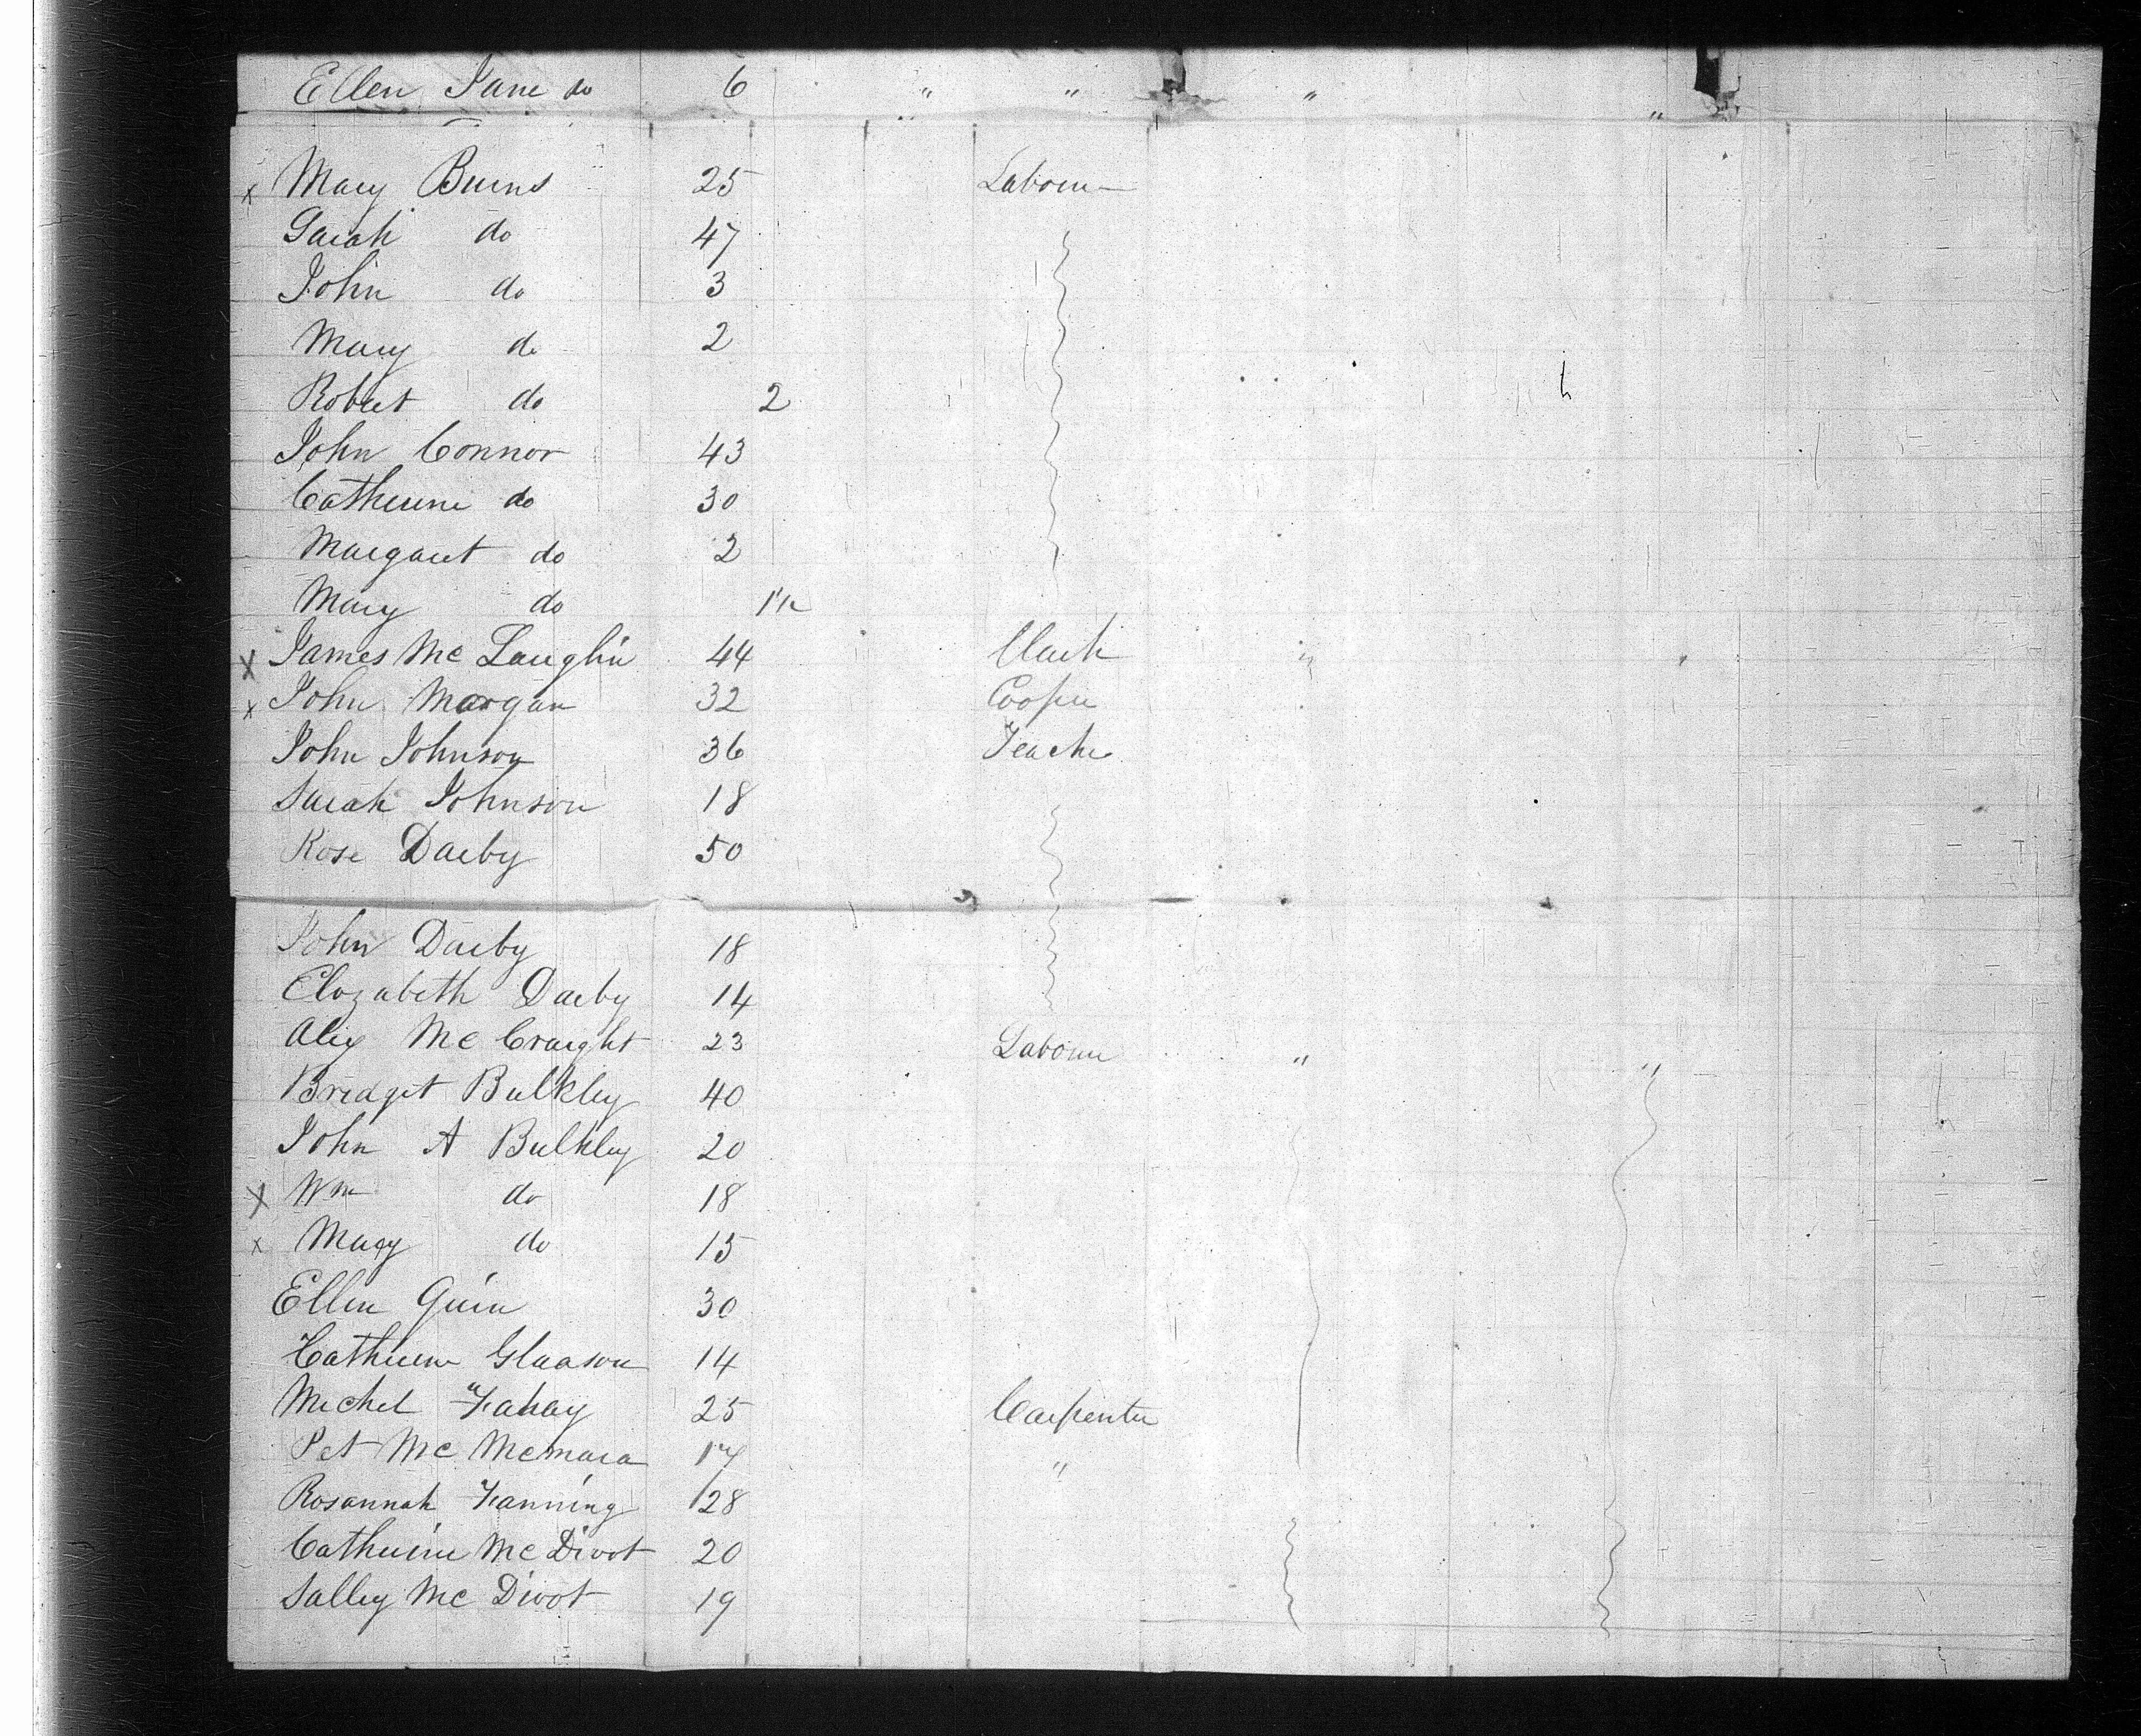 Ellen Jane do 6 " " " "
x Mary Burns 25 Labour
Sarah do 47
John do 3
Mary do 2
Robert do 2
John Connor 43
Catherine do 30
Margaret do 2
Mary do 1½
x James Mc Laughlin 44 Clark
x John Morgan 32 Cooper
John Johnson 36 Teacher
Sarah Johnson 18
Rose Darby 50
John Darby 18
Elozabeth Darby 14
Mc Craight 23 Labour " "
Bridget Bulkley 40
John A Bulkley 20
x Wm do 18
x Mary do 15
Ellen Quin 30
Catherine Gleason 14
Michel Fahay 25 Carpenter
Pat Mc Memara 17 "
Rosannah Fanning 28
Catherine Mc Divot 20
Salley Mc Divot 19